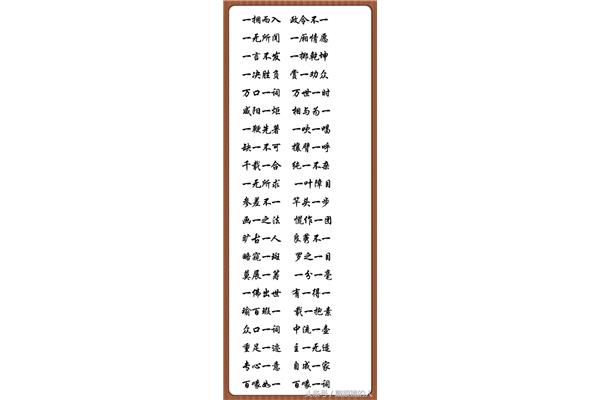 一拥而入 政令不一
一无所闻 一厢情愿
一言不发 一掷乾坤
一决胜负 赏一劝众
万口一词 万世一时
咸阳一炬 相与为一
一鞭先著 一吹一唱
缺一不可 攘臂一呼
千载一合 纯一不杂
一无所求 一叶障目
参差不一 竿头一步
画一之法 慌作一团
旷古一人 良莠不一
暗窥一斑 罗之一目
莫展一筹 一分一毫
一佛出世 有一得一
瑜百瑕一 载一抱素
众口一词 中流一壶
重足一迹 主一无适
专心一意 自成一家
百喙如一 百喙一词